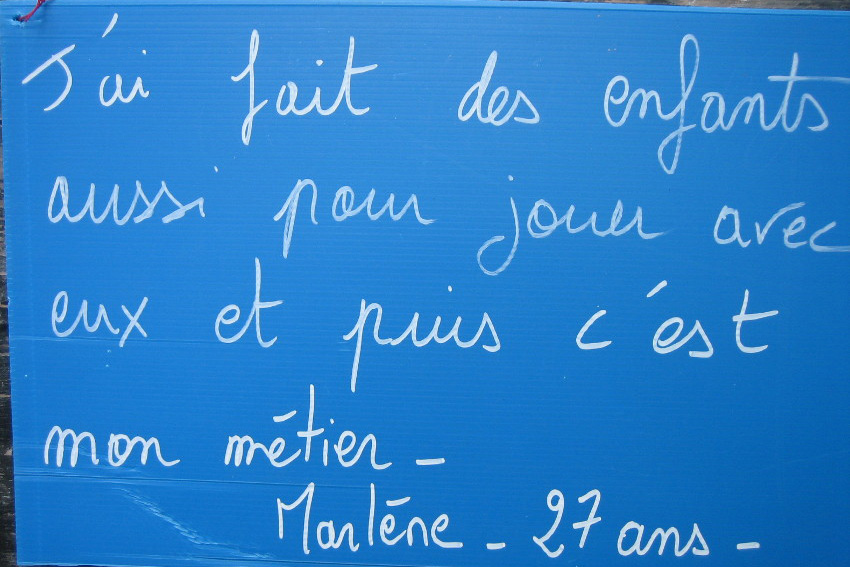 J'ai fait des enfants
aussi pour jouer avec
eux et puis c'est
mon métier -
Marlène - 27 ans -